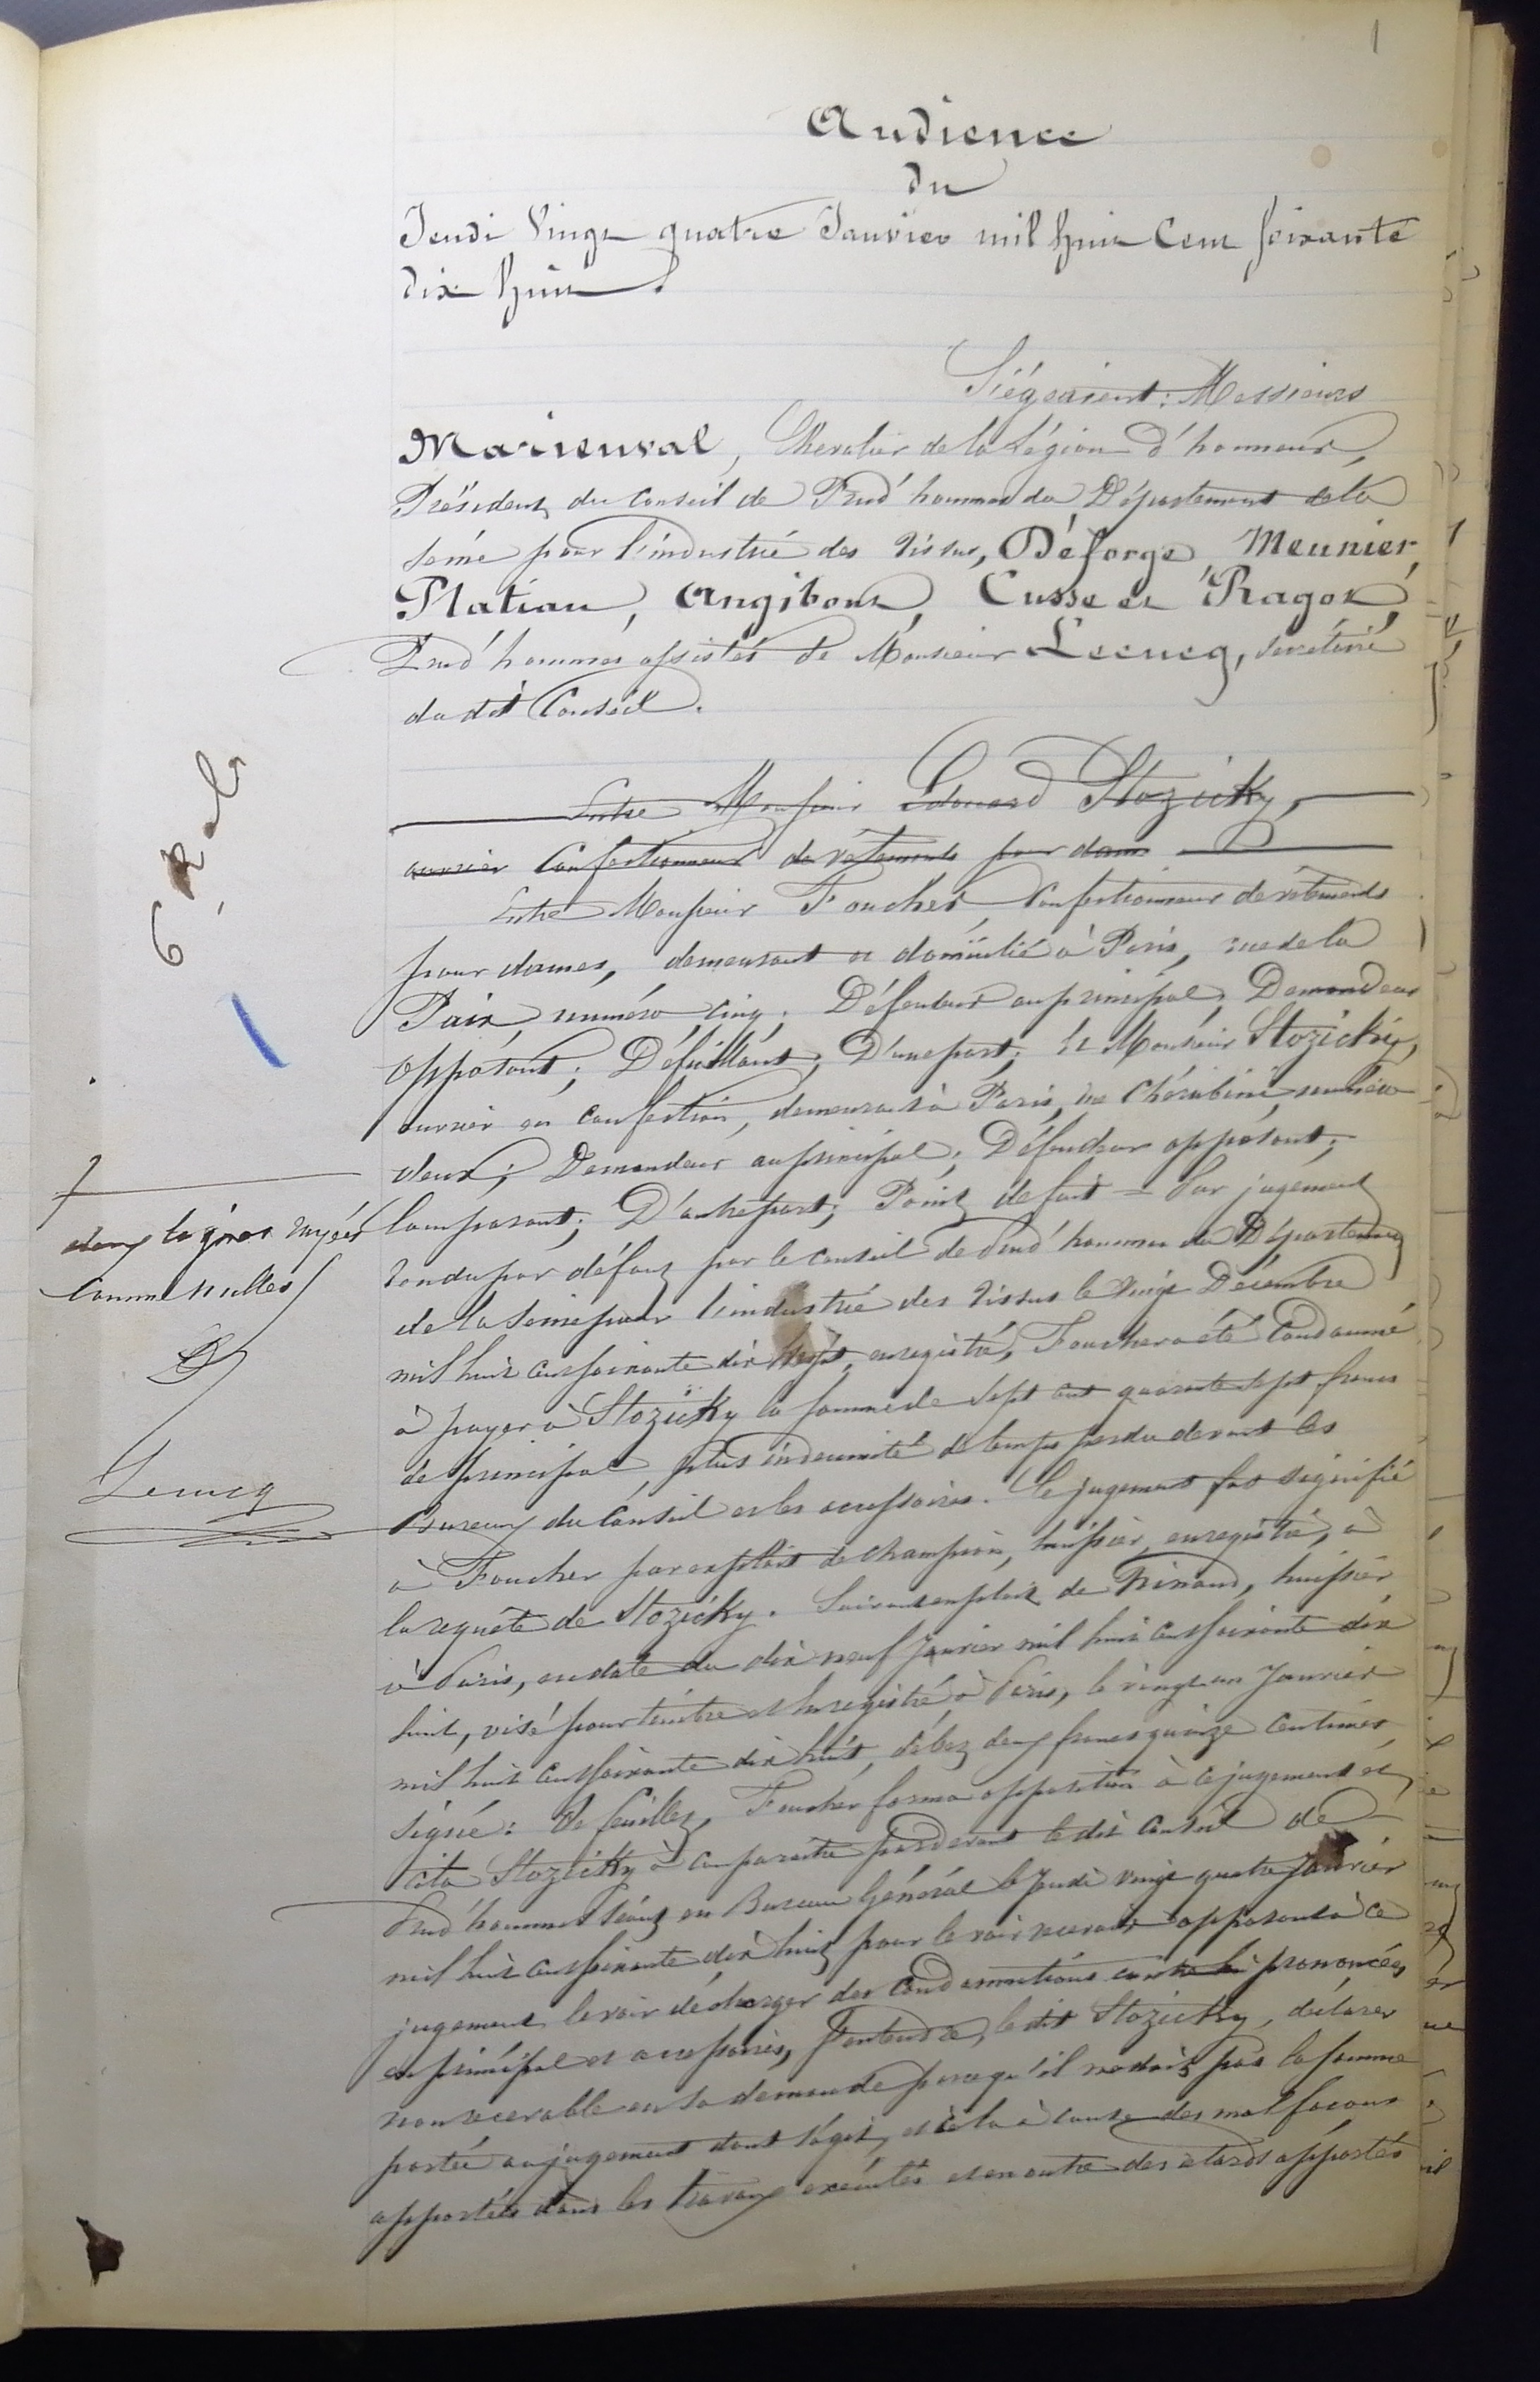 1
Audience
du
Jeudi Vingt quatre Janvier mil huit Cent soixante
dix huit.
Siégeaient: Messieurs
Marienval, Chevalier de la Légion d'honneur,
Président du Conseil de Prud'hommes du Département de la
Seine pour l'industrie des tissus, Déforge, Meunier,
Platiau, Angibout, Cusse et Ragot,
Prud'hommes assistés de Monsieur Lecucq, secrétaire
du dit Conseil.
Entre Monsieur Edouard Stozicky,
ouvrier Confectionneur de vêtements pour dames
Entre Monsieur Foucher, Confectionneur de vêtements
pour dames, demeurant et domicilié à Paris, rue de la
Paix, numéro cinq; Défendeur au principal; Demandeur
opposant; Défaillant; D'une part; Et Monsieur Stozicky,
ouvrier en confection, demeurant à Paris, rue Chérubini, numéro
deux; Demandeur au principal; Défendeur opposant;
Comparant; D'autre part; Point de fait = Par jugement
rendu par défaut par le Conseil de Prud'hommes du Département
de la Seine pour l'industrie des tissus le vingt Décembre
mil huit cent soixante dix sept, enregistré, Foucher a été Condamné
à payer à Stozicky la somme de sept cent quarante sept francs
de principal, plus indemnité de temps perdu devant les
Bureaux du Conseil et les accessoires. Ce jugement fut signifié
à Foucher par exploit de Champion, huissier, enregistré, à
la requête de Stozicky. Suivant exploit de Ninaud, huissier
à Paris, en date du dix neuf Janvier mil huit cent soixante dix
huit, visé pour timbre et enregistré à Paris, le vingt un Janvier
mil huit cent soixante dix huit, débet deux francs quinze centimes,
signé: De feuillez, Foucher forma opposition à ce jugement et
cita Stozicky à comparaître pardevant le dit Conseil de
Prud'hommes séant en Bureau Général le Jeudi vingt quatre Janvier
mil huit cent soixante dix huit pour le voir recevoir opposant à ce
jugement, le voir décharger des Condamnations contre lui prononcées
en principal et accessoires, s'entendre, le dit Stozicky, déclarer
non recevable en sa demande parcequ'il ne doit pas la somme
portée au jugement dont s'agit, et cela à cause des malfaçons
apportées dans les travaux exécutés et en outre des retards apportés
6 R. de
deux lignes rayées
comme nulles
Lecucq